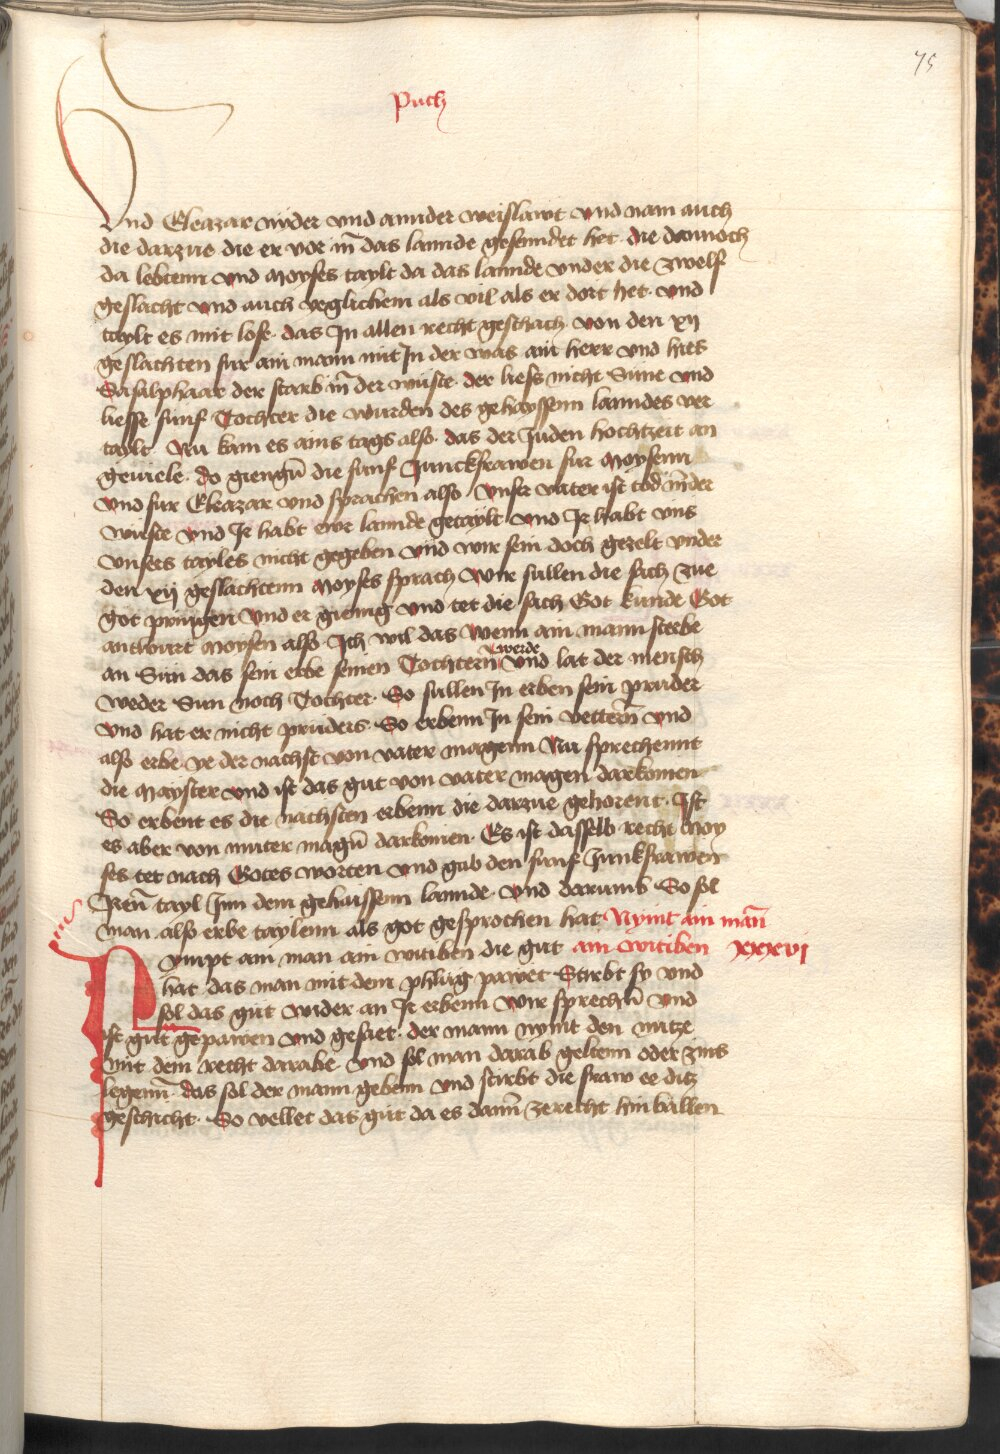 75
Puch
Vnd Eleazar wider vnd annder weislawt vnd nam auch
die darzue die er vor in̄ das lannde gesenndet het die dannoch
da lebtenn vnd Moyses taylt da das lannde vnder die zwelf
geslacht vnd auch yeglichem als vil als er dort het. vnd
taylt es mit lose. das Jn allen recht geschach. von den xij
geslachten fur ain mann mit Jn der was ain herr vnd hies
Salalphaar der starb in̄ der wuste. der liess nicht Sune vnd
liesse funf Tochter die wurden des gehayssenn lanndes ver
taylt. Nu kam es ains tags also. das der Juden hochtzeit an
geuiele. do giengn̄ die funf Junckfrawen fur Moysenn
vnd fur Eleazar vnd sprachen also vnser vater ist tod in̄ der
wuste vnd Jr habt ewr lannde getaylt vnd Jr habt vns
vnsers tayles nicht gegeben vnd wir sein doch gezelt vnder
den xij geslachtenn Moyses sprach wir sullen die sach zue
got pringen vnd er gieng vnd tet die sach Got kunde Got
antwurt Moysen also Jch wil das wenn ain mann sterbe
an Sun das sein erbe seinen Tochtern̄ werde vnd lat der mensch
weder Sun noch Tochter. So sullen Jn erben sein pruder
vnd hat er nicht pruders. So erbenn Jn sein vettern̄ vnd
also erbe ye der nachst von vater magenn Nu sprechennt
die Mayster vnd ist das gut von vater magen darkomen
So erbent es die nachsten erbenn die darzue gehorent. Jst
es aber von muter magn̄ darkomen. Es ist dasselb recht Moy
ses tet nach Gotes worten vnd gab den funf Junkfrawen
Jren̄ tayl Jnn dem gehaissenn lannde. vnd darumb So sol
man also erbe taylenn als got gesprochen hat Nymt ain man̄
Nympt ain man ain witiben die gut ain witiben xxxvi
hat das man mit dem phlug pawet Stirbt sy vnd
sol das gut wider an Jr erbenn wir sprechn̄ vnd
ist gut gepawen vnd gesaet. der mann nymt den nutze
mit dem recht darabe. vnd sol man darab geltenn oder zins
legenn̄. das sol der mann gebenn vnd stirbt die fraw ee ditz
geschicht. So vellet das gut da es dann̄ zerecht hin vallen